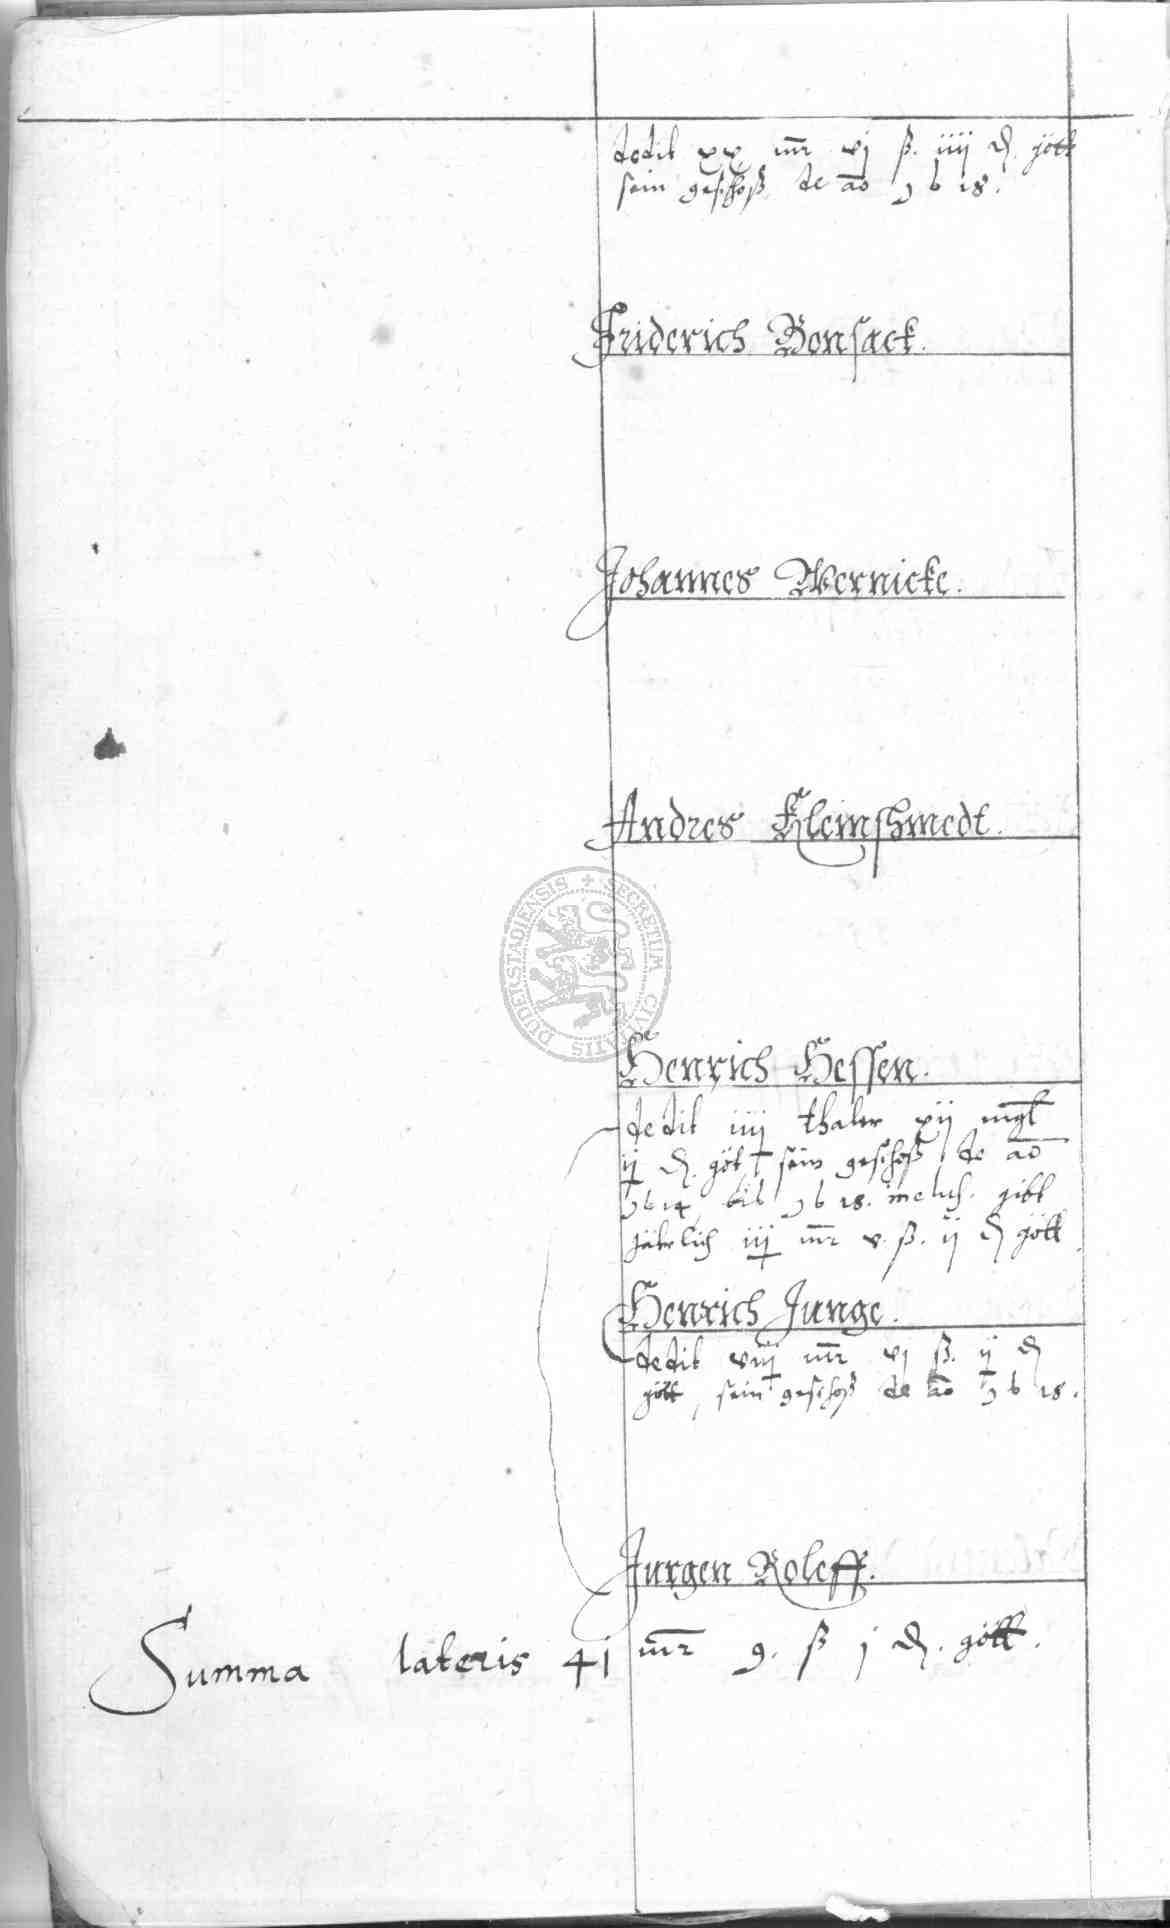 dedit xx mr vj ß. iiij ₰. gött
sein geschoß de ao 1618.
Friderich Bonsack.
Johannes Wernicke.
Andres Kleinshmedt.
SECRETUM CIVITATIS DUDERSTADIENSIS
Henrich Hessen.
dedit iiij thaler xij mgl
ij ₰. göt sein geschoß de ao
1614 bis 1618. inclus. gibt
jährlich iij mr v. ß. ij ₰ gött.
Henrich Junge.
dedit viij mr vj ß. ij ₰
gött, sein geschoß de ao 1618.
Jurgen Roleff.
Summa lateris 41 mr 9. ß j ₰. gött.